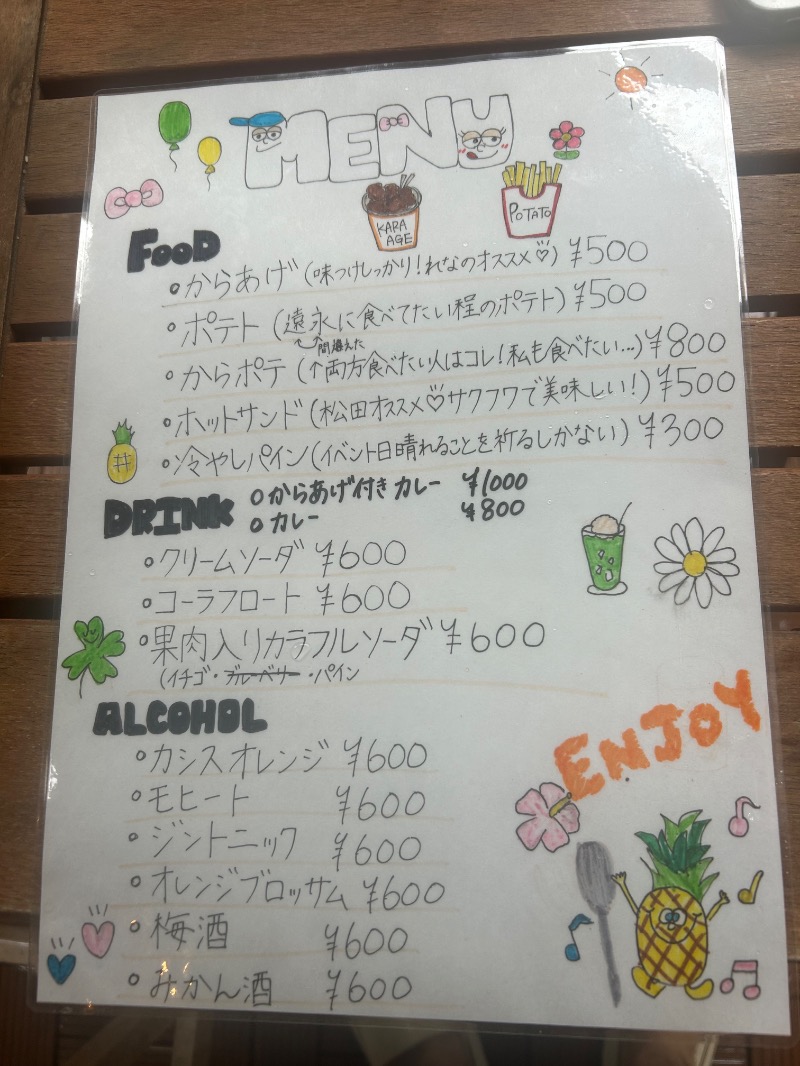 MENU
KARA
AGE
POTATO
FOOD
からあげ(味つけしっかり!れなのオススメ♡) ¥500
ポテト(遠永に食べてたい程のポテト) ¥500
↑↑間違えた
からポテ(↑両方食べたい人はコレ!私も食べたい…) ¥800
ホットサンド(松田オススメ♡サクフワで美味しい!) ¥500
冷やしパイン(イベント日晴れることを祈るしかない) ¥300
からあげ付きカレー ¥1000
カレー ¥800
DRINK
クリームソーダ ¥600
コーラフロート ¥600
果肉入りカラフルソーダ ¥600
(イチゴ・ブルーベリー・パイン
ALCOHOL
カシスオレンジ ¥600
モヒート ¥600
ジントニック ¥600
オレンジブロッサム ¥600
梅酒 ¥600
みかん酒 ¥600
ENJOY